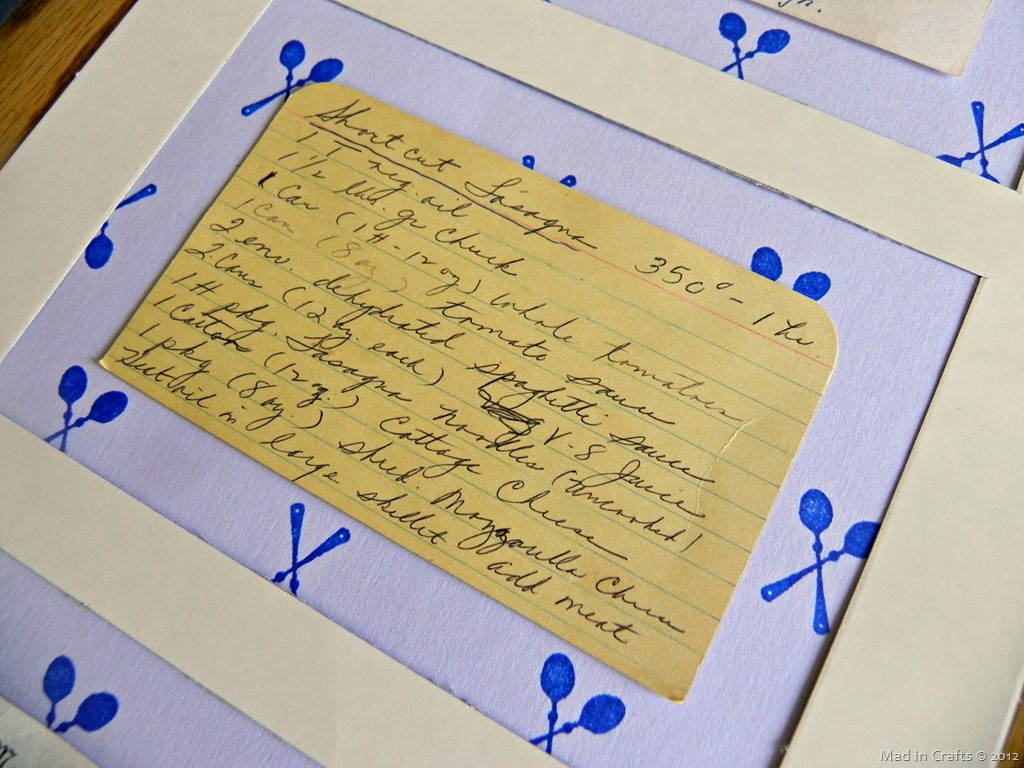 Short cut Lasagna 350° - 1 hr.
1 T veg. oil
1 1/2 lbs gr chuck
1 Can (1# - 12 oz) whole tomatoes
1 Can (8 oz) tomato sauce
2 env. dehydrated spaghetti sauce
2 Cans (12 oz. each) V-8 Juice
1# pkg. Lasagna noodles (uncooked)
1 Carton (12 oz.) Cottage Cheese
1 pkg (8 oz.) shred Mozzarella Cheese
Heat oil in large skillet add meat
Mad in Crafts © 2012